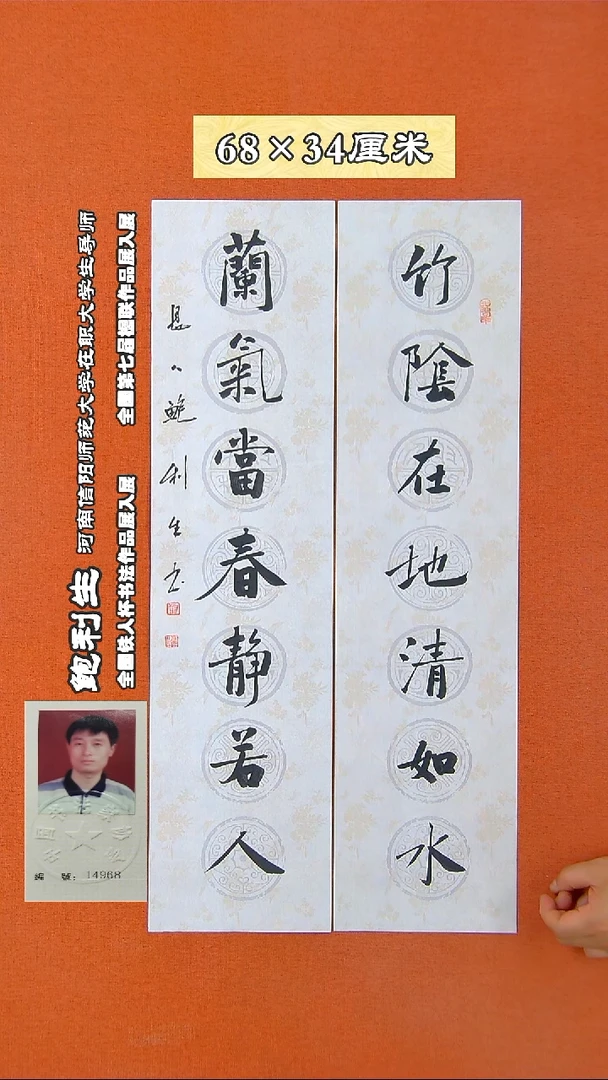 68×34厘米
竹陰在地清如水
蘭氣當春靜若人
鮑利生書
鲍利生 河南信阳师范大学在职大学生导师
全国第七届楹联作品展入展
全国铁人杯书法作品展入展
編 號：14968